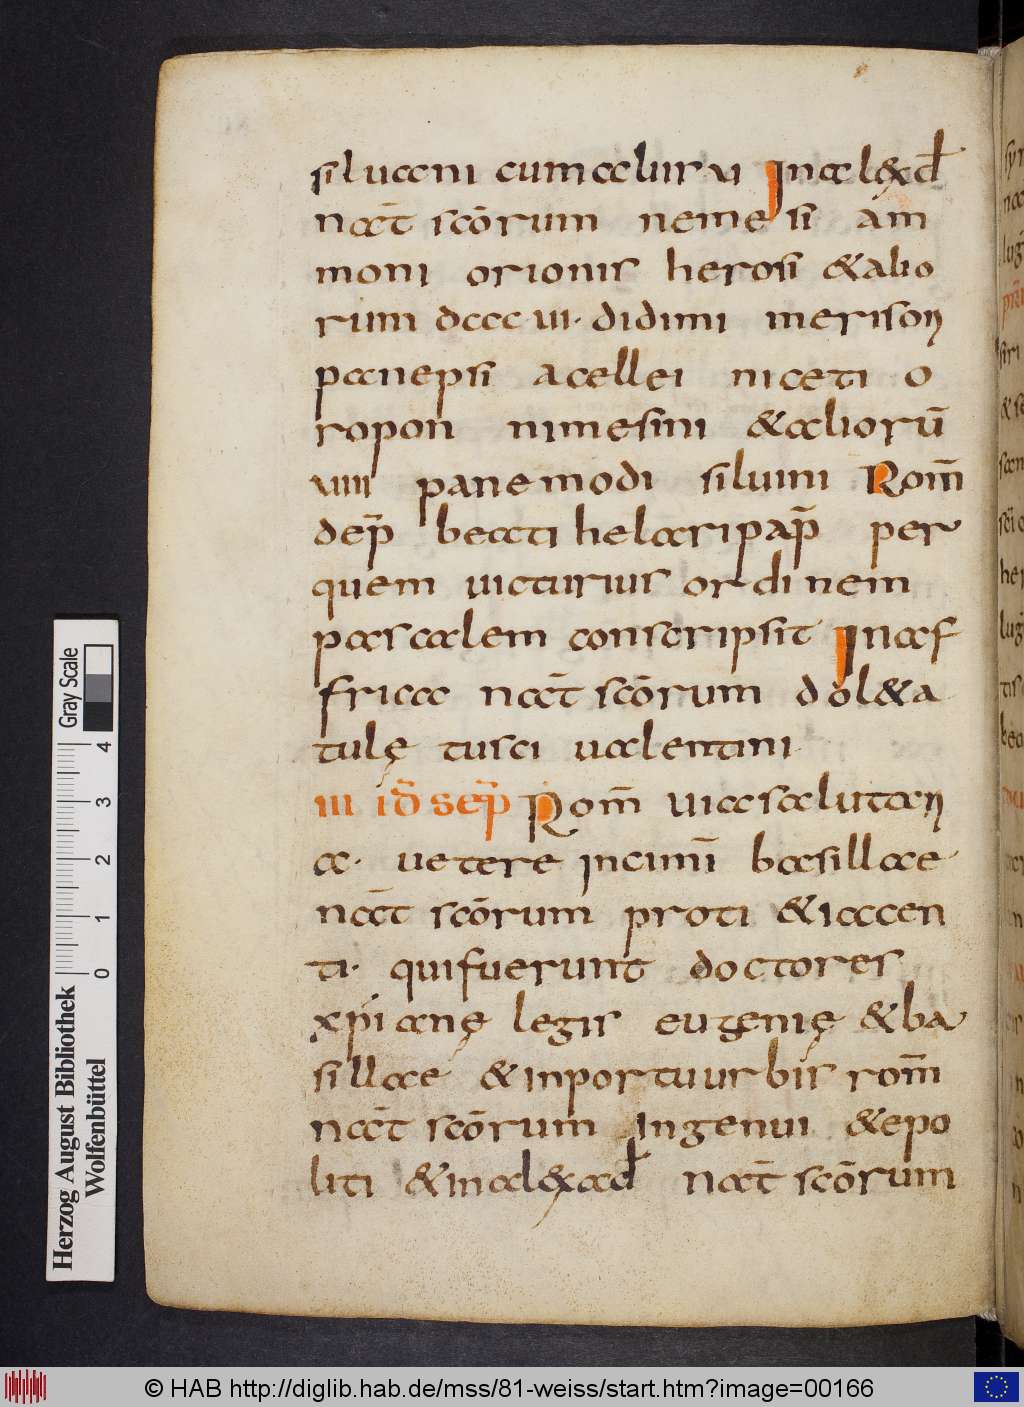 siluani cum aliis vi In alexd̄
nat̄ scōrum nemesi am
moni orionis herosi & alio
rum dccc vii· didimi merison
panepsi acellei niceti o
ropon nimesini & aliorū
viiii panemodi siluini Rom̄
dep̄ beati helari pap̄ per
quem uicturius ordinem
pascalem conscripsit In af
frica nat̄ scōrum dol&a
tulę tusci ualentini
iii id̄ sep̄ Rom̄ uia salutari
a· uetere in cimī basillae
nat̄ scōrum proti & iaccen
ti· qui fuerunt doctores
xp̄ianę legis eugenię & ba
sillae & in portu urbis rom̄
nat̄ scōrum ingenui & epo
liti & in alexad̄ nat̄ scōrum
Gray Scale
0 1 2 3 4
Herzog August Bibliothek
Wolfenbüttel
© HAB http://diglib.hab.de/mss/81-weiss/start.htm?image=00166